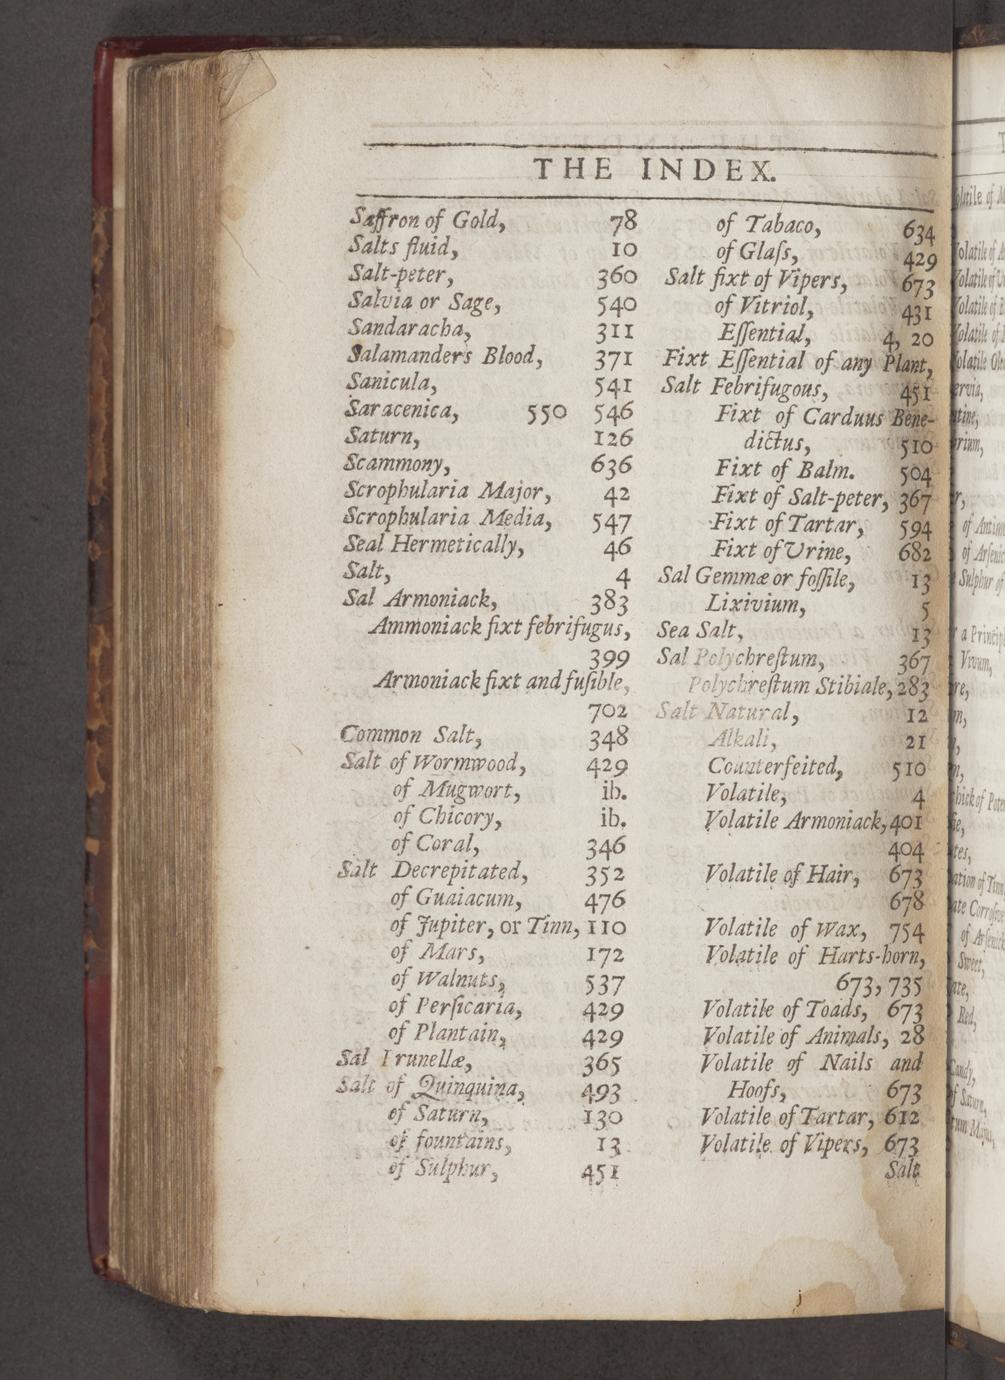 THE INDEX.
Saffron of Gold, 78
Salts fluid, 10
Salt-peter, 360
Salvia or Sage, 540
Sandaracha, 311
Salamanders Blood, 371
Sanicula, 541
Saracenica, 550 546
Saturn, 126
Scammony, 636
Scrophularia Major, 42
Scrophularia Media, 547
Seal Hermetically, 46
Salt, 4
Sal Armoniack, 383
Ammoniack fixt febrifugus,
399
Armoniack fixt and fuſible,
702
Common Salt, 348
Salt of Wormwood, 429
of Mugwort, ib.
of Chicory, ib.
of Coral, 346
Salt Decrepitated, 352
of Guaiacum, 476
of Jupiter, or Tinn, 110
of Mars, 172
of Walnuts, 537
of Perſicaria, 429
of Plantain, 429
Sal Prunellæ, 365
Salt of Quinquina, 493
of Saturn, 130
of fountains, 13
of Sulphur, 451
of Tabaco, 634
of Glaſs, 429
Salt fixt of Vipers, 673
of Vitriol, 431
Eſſential, 4, 20
Fixt Eſſential of any Plant,
Salt Febrifugous, 451
Fixt of Carduus Bene-
dictus, 510
Fixt of Balm. 504
Fixt of Salt-peter, 367
Fixt of Tartar, 594
Fixt of Urine, 682
Sal Gemmæ or foſſile, 13
Lixivium, 5
Sea Salt, 13
Sal Polychreſtum, 367
Polychreſtum Stibiale, 283
Salt Natural, 12
Alkali, 21
Counterfeited, 510
Volatile, 4
Volatile Armoniack, 401
404
Volatile of Hair, 673
678
Volatile of Wax, 754
Volatile of Harts-horn,
673, 735
Volatile of Toads, 673
Volatile of Animals, 28
Volatile of Nails and
Hoofs, 673
Volatile of Tartar, 612
Volatile of Vipers, 673
Salt